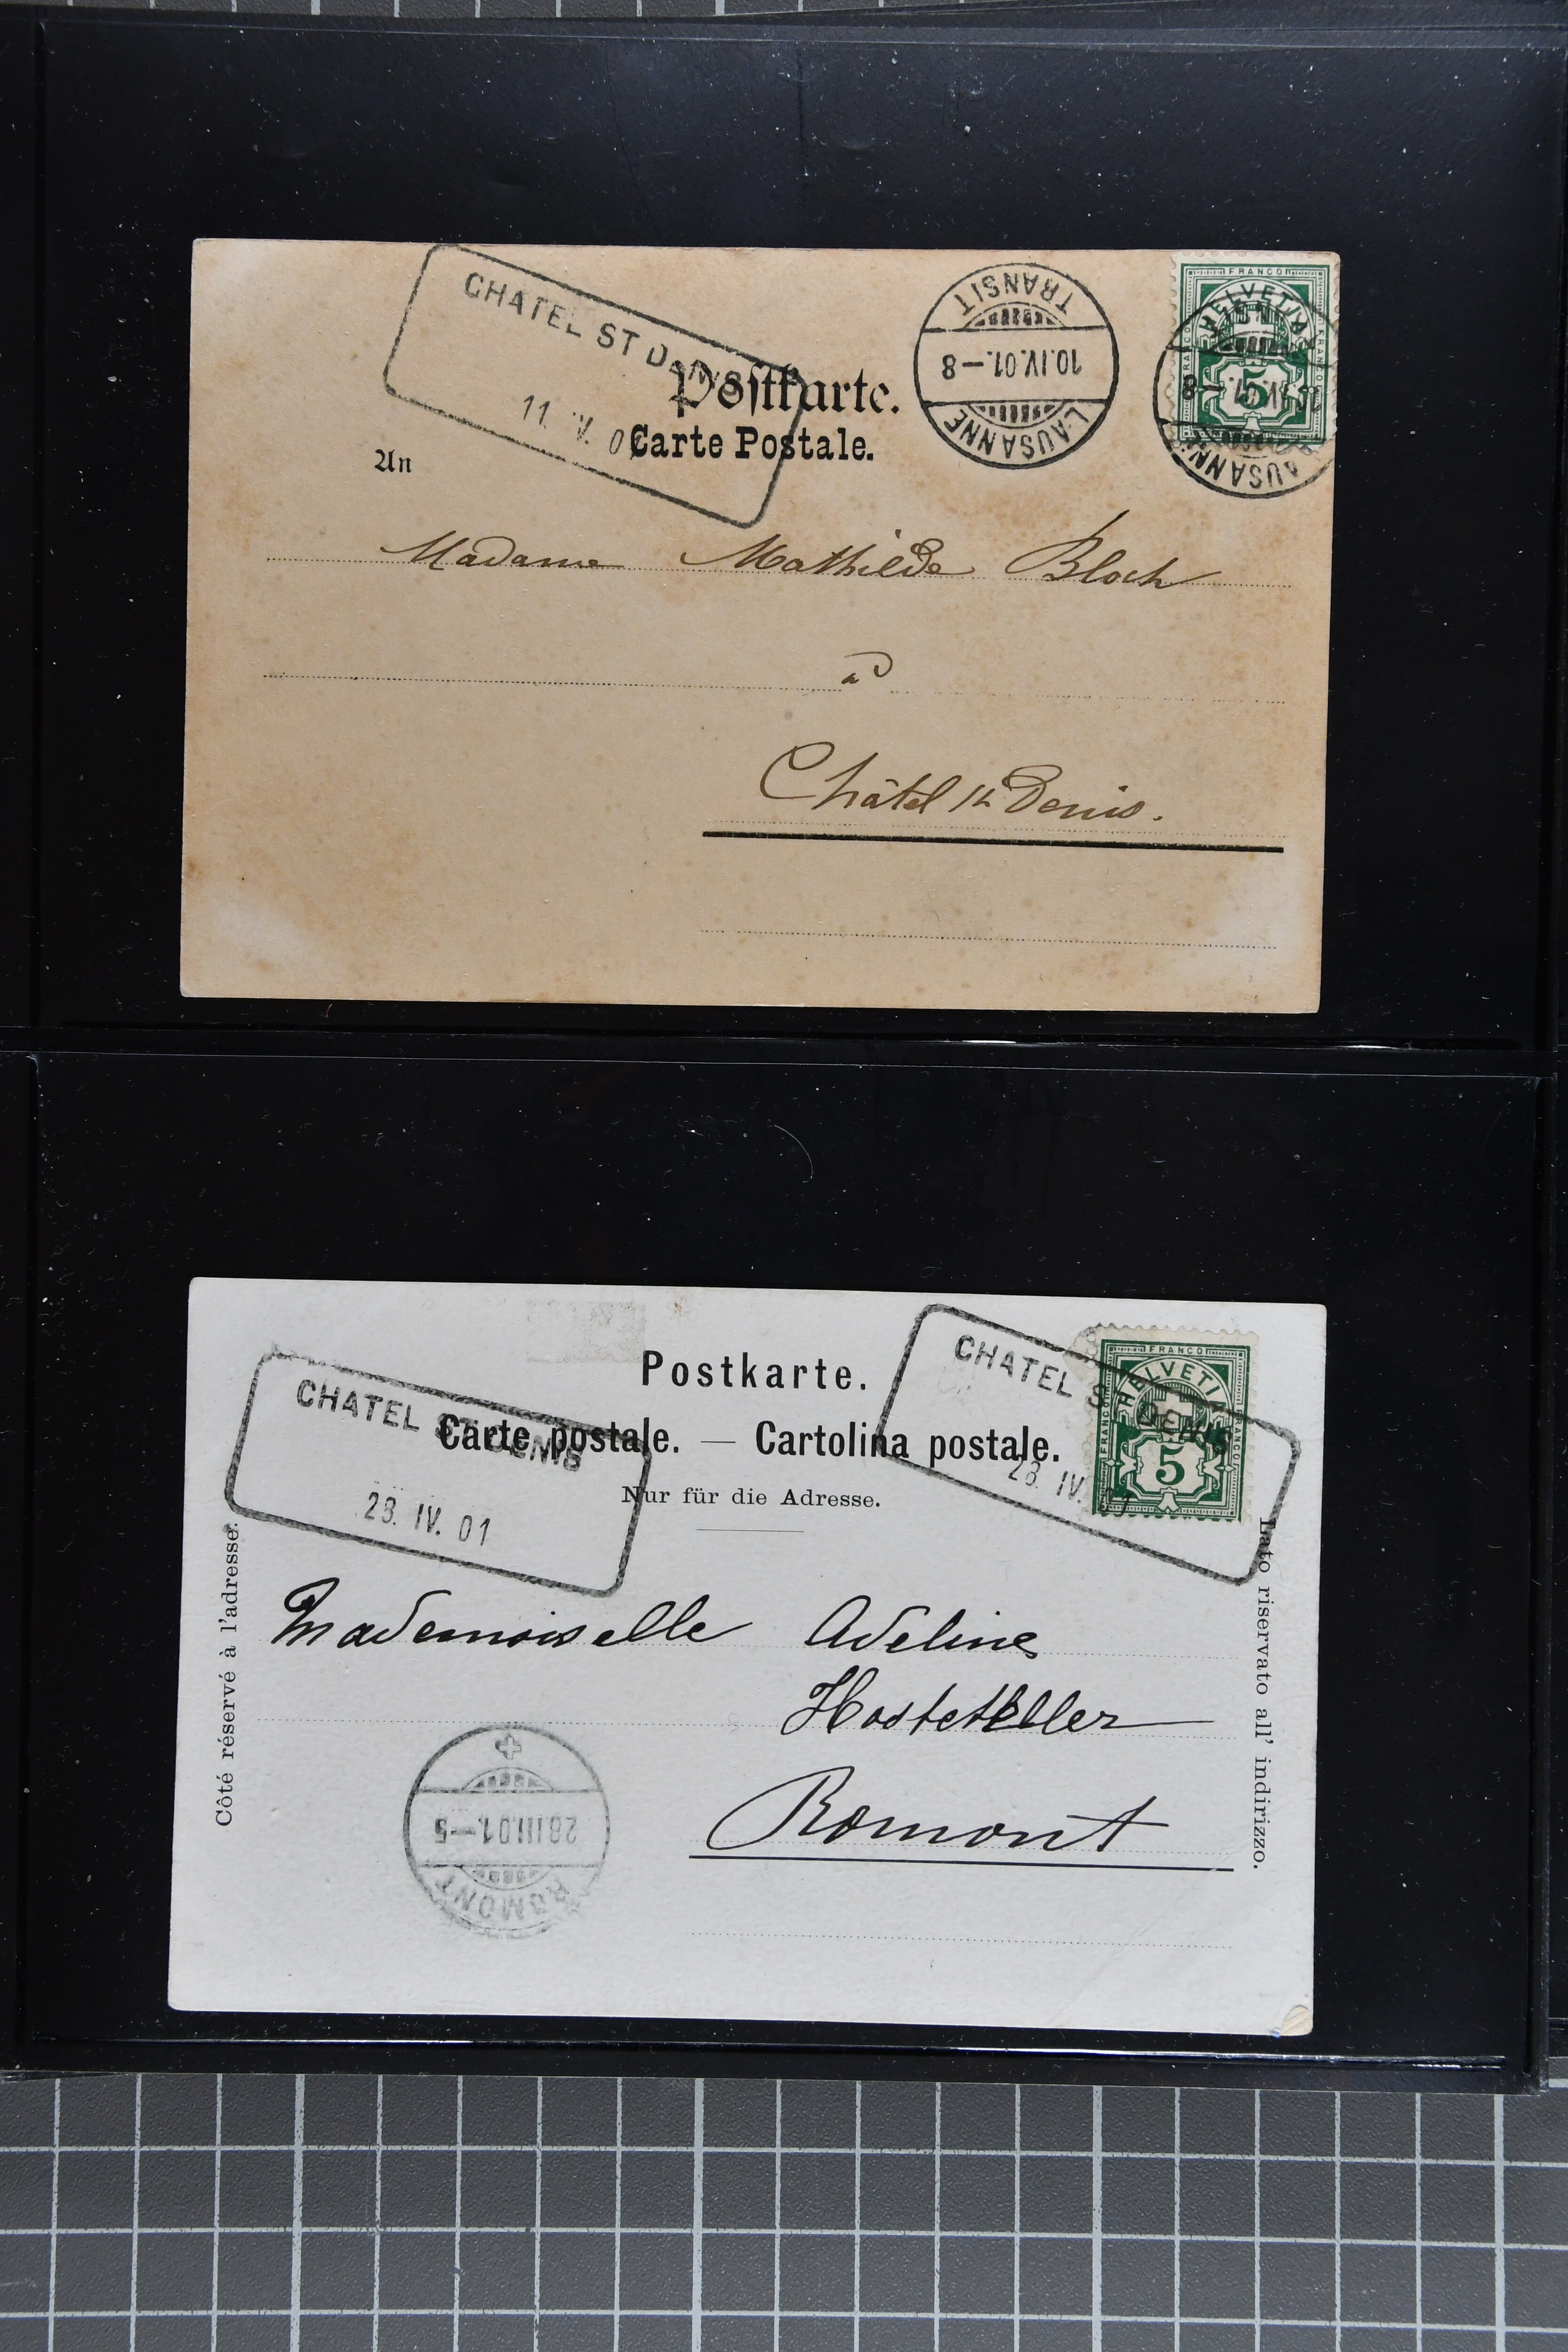 CHATEL ST DENIS
11. IV. 0
TRANSIT
10.IV.01.–8
LAUSANNE
FRANCO
HELVETIA
FRANCO
FRANCO
5
LAUSANNE
Postkarte.
Carte Postale.
An
Madame Mathilde Bloch
à
Châtel St Denis.
CHATEL ST DENIS
28. IV. 01
CHATEL ST DENIS
28. IV. 01
FRANCO
HELVETIA
FRANCO
FRANCO
5
Postkarte.
Carte postale. — Cartolina postale.
Nur für die Adresse.
Côté réservé à l'adresse.
Lato riservato all' indirizzo.
Mademoiselle Adeline
Hostettler
Romont
ROMONT